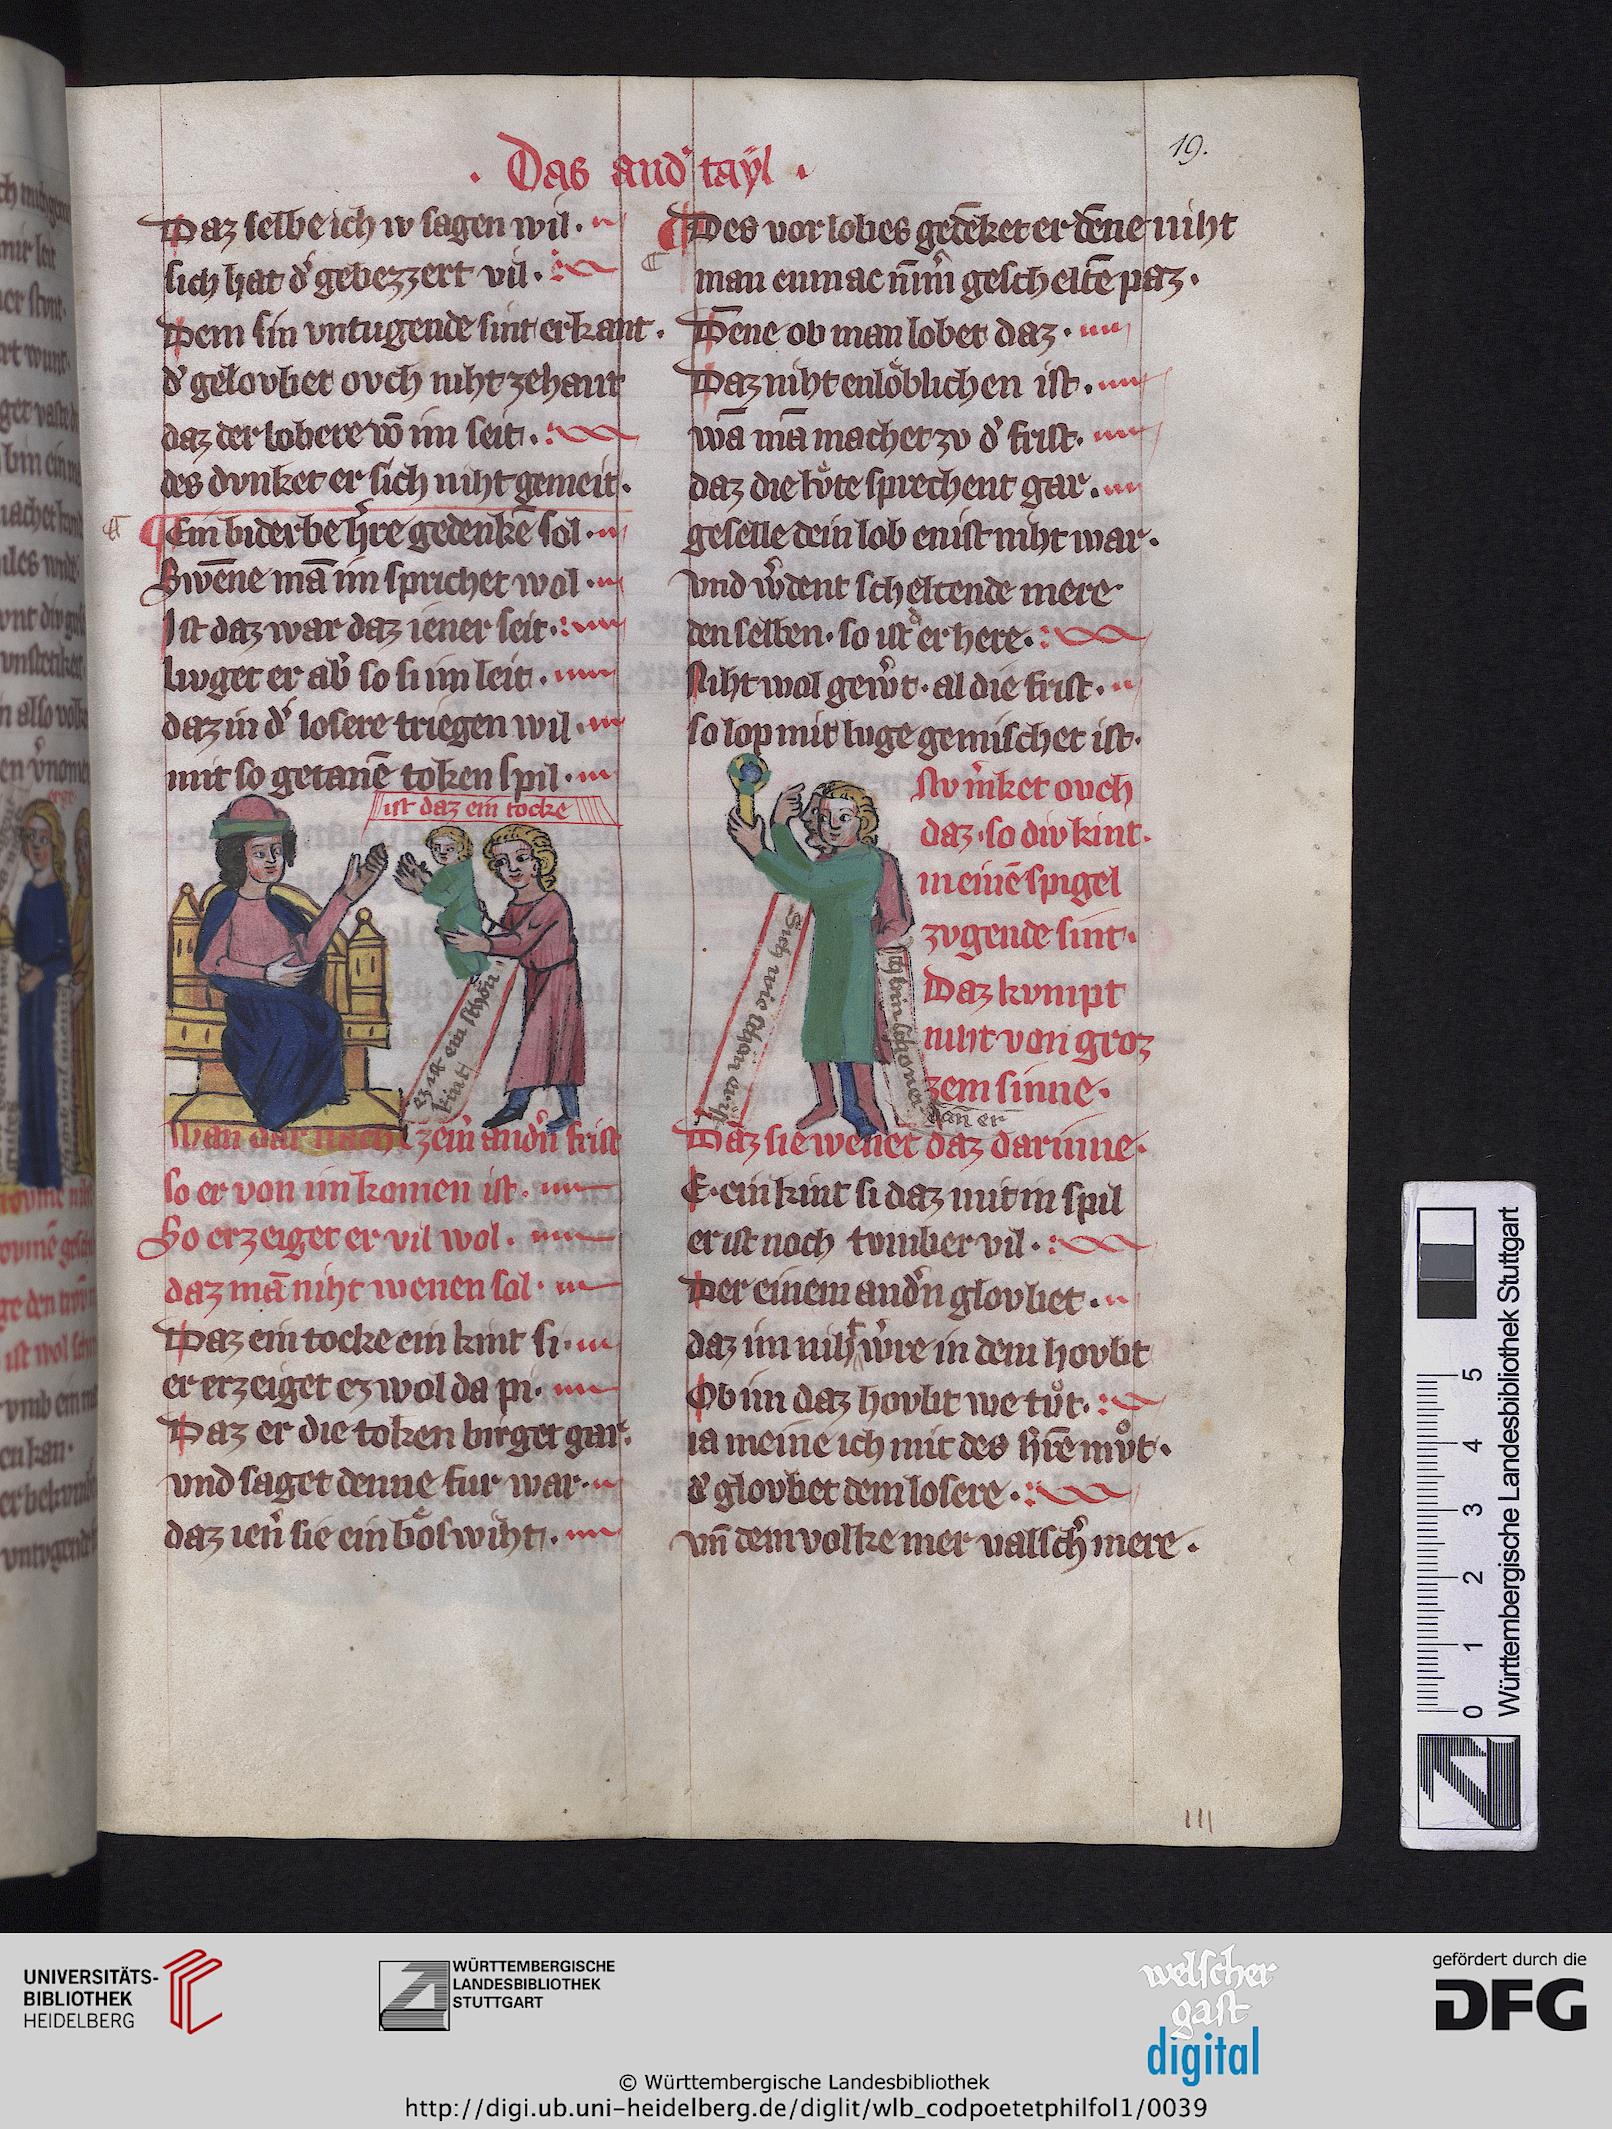 · Das andᷣ tayl ·
19.
Daz selbe ich w sagen wil ·
sich hat dᷣ gebezzert vil ·
Dem sin vntugende sint erkant ·
dᷣ gelovbet ovch niht zehant
daz der lobere vō im seit ·
des dvnket er sich niht gemeit ·
Ein biderbe hᷣre gedenkē sol ·
Swēne mā im sprichet wol ·
Ist daz war daz iener seit ·
luget er abᷣ so si im leit ·
daz in dᷣ losere triegen wil ·
mit so getanē token spil ·
ist daz ein tocke
ez ist ein schön
kint
wan dar nach zeim̄ andnᷣ frist
so er von im komen ist ·
So erzeiget er vil wol ·
daz mā niht wenen sol ·
Daz ein tocke ein kint si ·
er erzeiget ez wol da pi ·
Daz er die token birget gar ·
vnd saget denne fur war ·
daz ienᷣ sie ein böswiht ·
Des vor lobes gedēket er dēne niht
man enmac nīmᷣ gescheltē paz ·
Dēne ob man lobet daz ·
Daz niht enlöblichen ist ·
wā mā machet zv dᷣ frist ·
daz die lůte sprechent gar ·
geselle dein lob enist niht war ·
vnd wᷣdent scheltende mere
den selben · so ist dᷣ er here ·
Niht wol gewᷣt · al die frist ·
so lop mit luge gemischet ist ·
Nv mᷣket ovch
daz · so div kint ·
in einē spigel
zvgende sint ·
Daz kvmpt
niht von groz
zem sinne ·
Sich wie schön ich
ich bin schoner
dan er
Daz sie wenet daz darinne ·
E · ein kint si daz mit in spil
er ist noch tvmber vil ·
Der einem andnᷣ glovbet ·
daz im niht wᷣre in dem hovbt
Ob im daz hovbt we tůt ·
ia meine ich mit des hᷣrē můt ·
dᷣ glovbet dem losere ·
vn̄ dem volke mer valschᷣ mere ·
III
0 1 2 3 4 5
Württembergische Landesbibliothek Stuttgart
UNIVERSITÄTS-
BIBLIOTHEK
HEIDELBERG
WÜRTTEMBERGISCHE
LANDESBIBLIOTHEK
STUTTGART
welscher
gast
digital
gefördert durch die
DFG
© Württembergische Landesbibliothek
http://digi.ub.uni-heidelberg.de/diglit/wlb_codpoetetphilfol1/0039